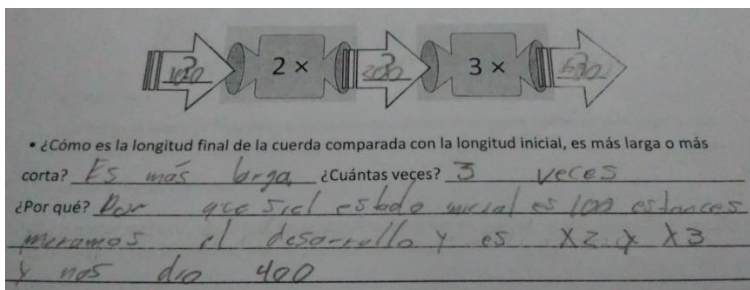 ? 2 × ? 3 × ?
• ¿Cómo es la longitud final de la cuerda comparada con la longitud inicial, es más larga o más
corta? Es más larga ¿Cuántas veces? 3 veces
¿Por qué? Por que si el estado inicial es 100 entonces
miramos el desarrollo y es X2 y X3
y nos dio 400